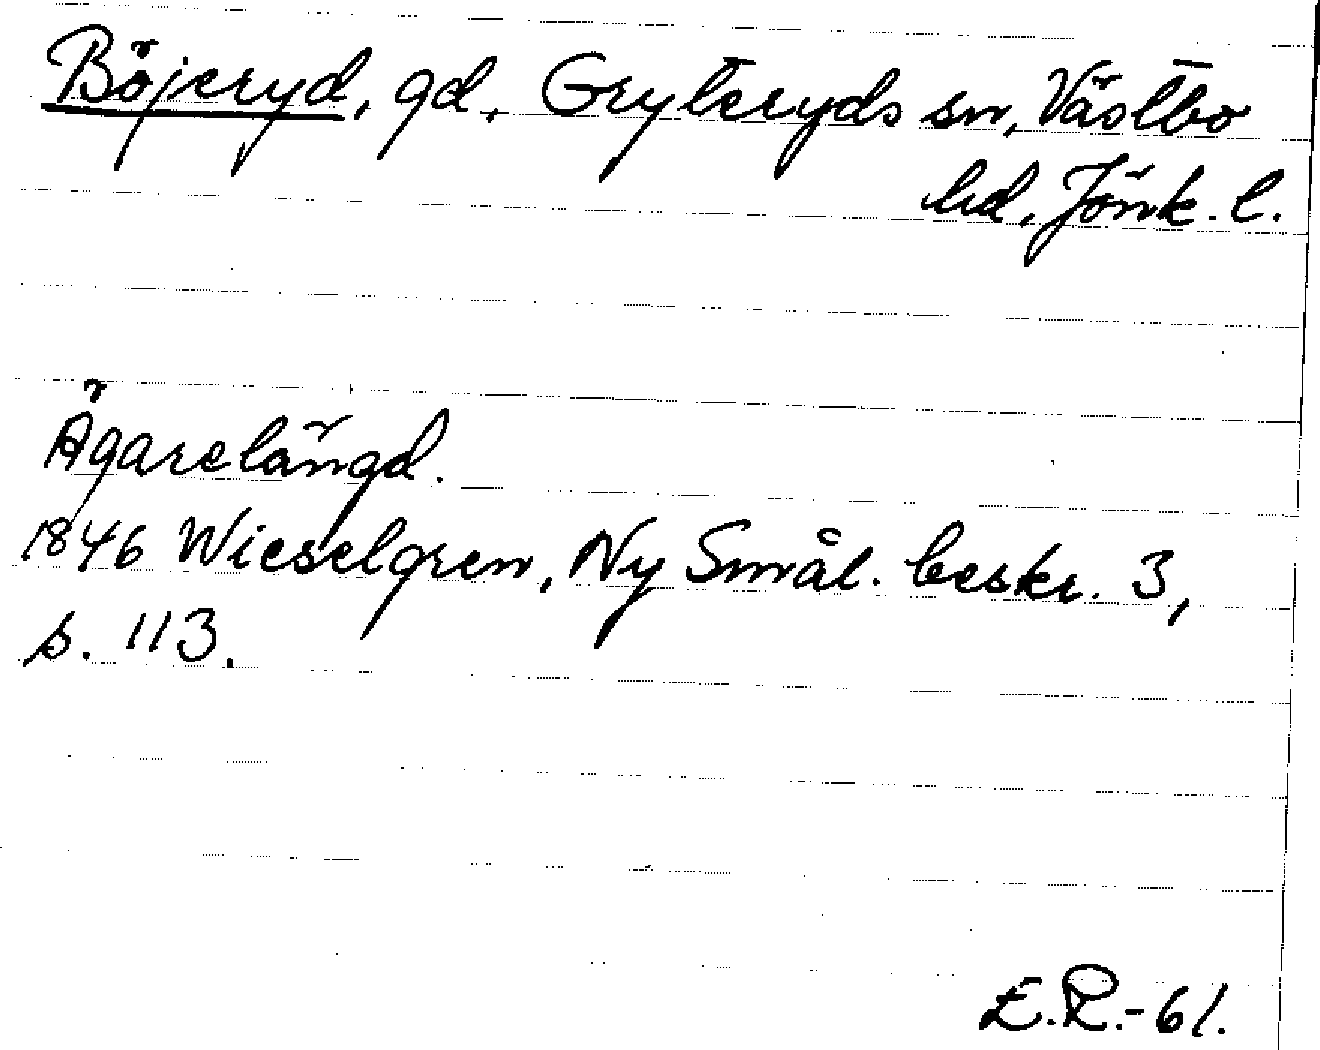 Böjeryd, gd, Gryteryds sn, Västbo
hd, Jönk. l.
Ägarelängd.
1846 Wieselgren, Ny Smål. beskr. 3,
s. 113.
E.R.-61.